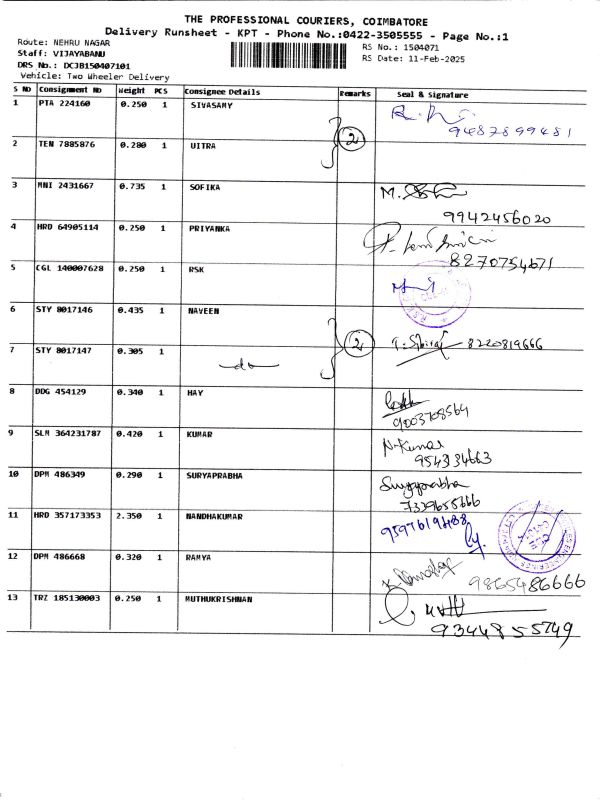 THE PROFESSIONAL COURIERS, COIMBATORE
Delivery Runsheet - KPT - Phone No.:0422-3505555 - Page No.:1
Route: NEHRU NAGAR
RS No.: 1504071
Staff: VIJAYABANU
RS Date: 11-Feb-2025
DRS No.: DCJB150407101
Vehicle: Two Wheeler Delivery
S No Consignment No Weight PCS Consignee Details Remarks Seal & Signature
1 PTA 224160 0.250 1 SIVASAMY
9487899481
2 TEN 7885876 0.280 1 UITRA 2
3 MNI 2431667 0.735 1 SOFIKA
9942456020
4 HRD 64905114 0.250 1 PRIYANKA
8270754671
5 CGL 140007628 0.250 1 RSK
6 STY 8017146 0.435 1 NAVEEN 2
8220819666
7 STY 8017147 0.305 1 do
8 DDG 454129 0.340 1 HAY
9003708564
9 SLM 364231787 0.420 1 KUMAR N-Kumar
9543134663
10 DPM 486349 0.290 1 SURYAPRABHA Suryaprabha
7339655666
11 HRD 357173353 2.350 1 NANDHAKUMAR 9597619488
12 DPM 486668 0.320 1 RAMYA
9865486666
13 TRZ 185130003 0.250 1 MUTHUKRISHNAN
9344855749